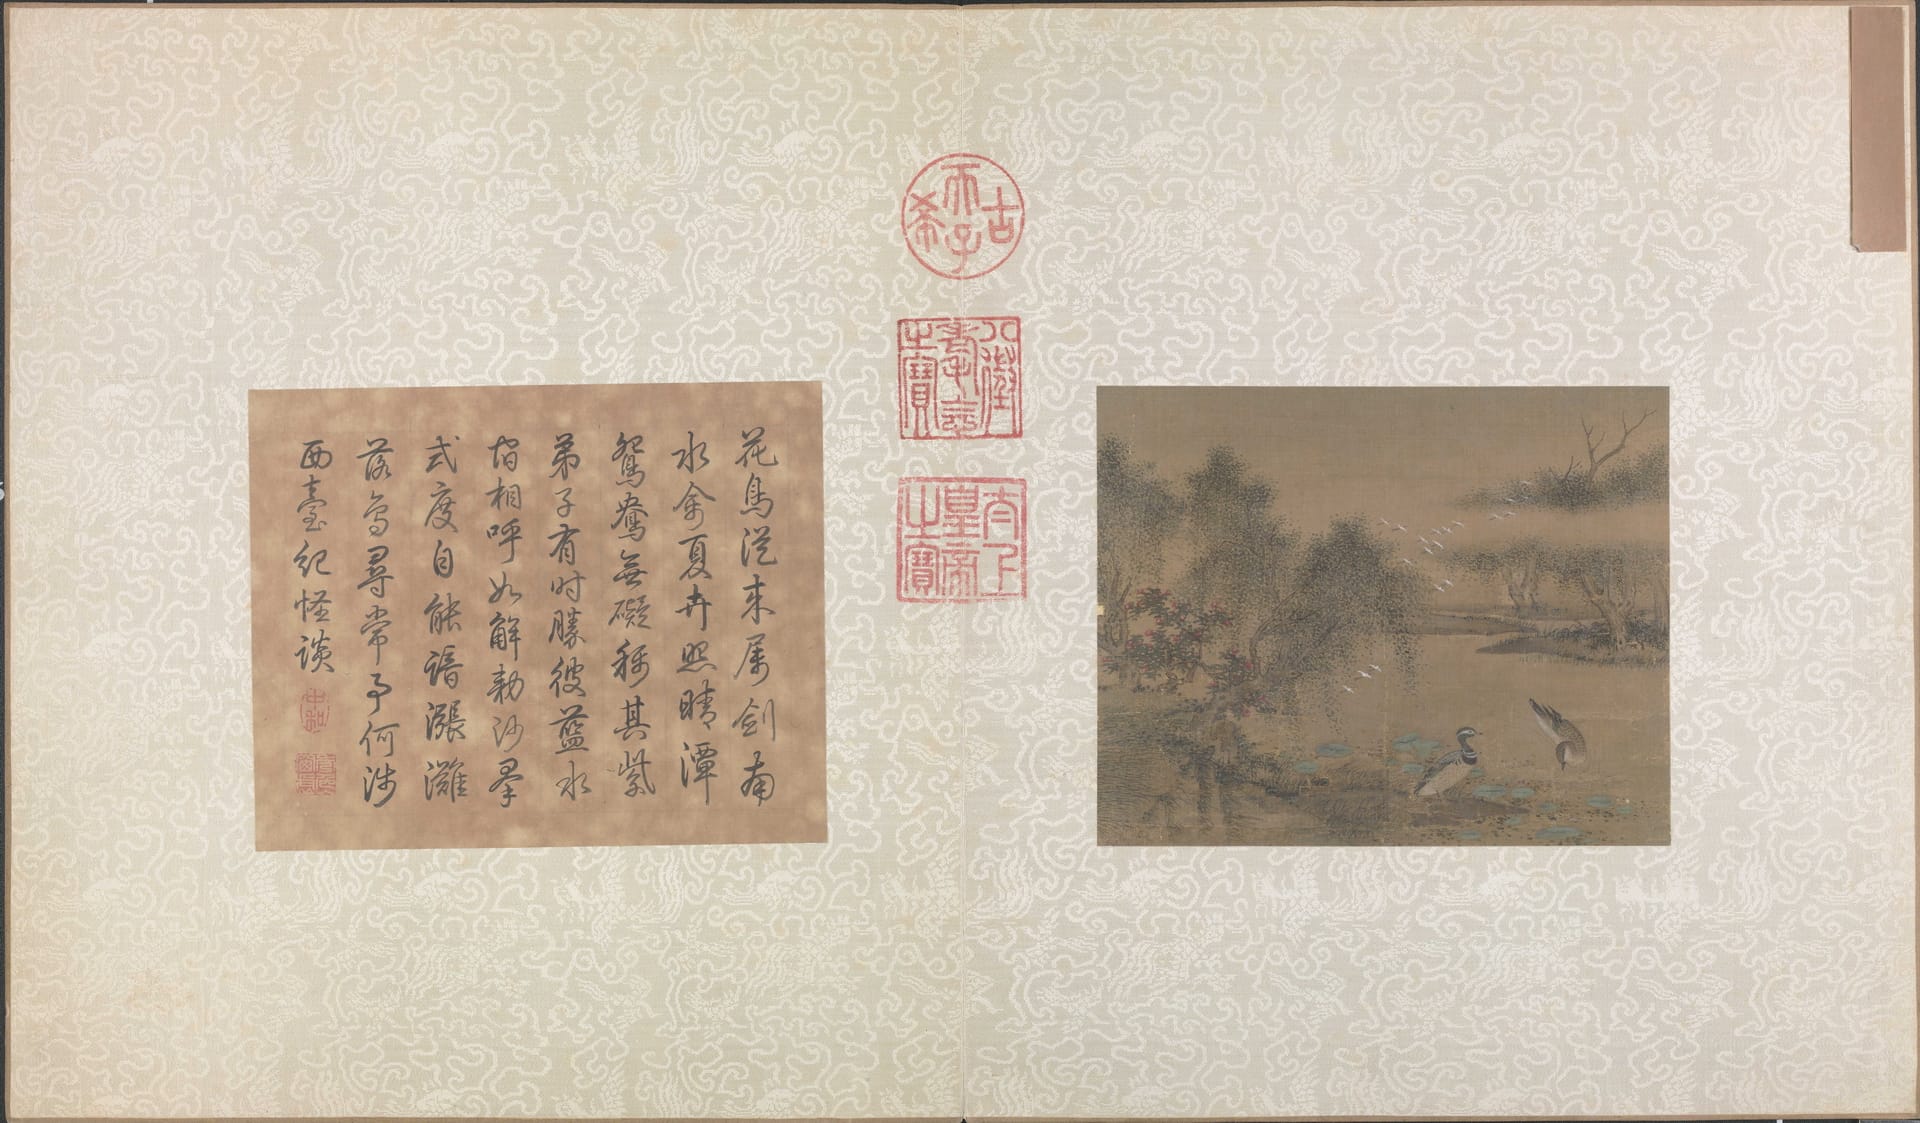 古希天子
八徵耄念之寶
太上皇帝之寶
花鳥從來属劍南
水禽夏卉照晴潭
鴛鴦無礙稱其紫
弟子有时勝彼藍水
宿相呼如解勅沙羣
式度自能諳漲灘
落為尋常事何涉
西臺紀怪談